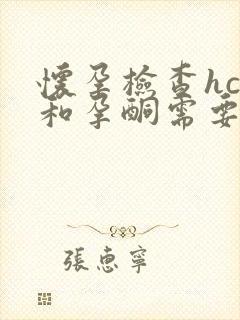 懷孕檢查hc
和孕酮需要
張惠寧